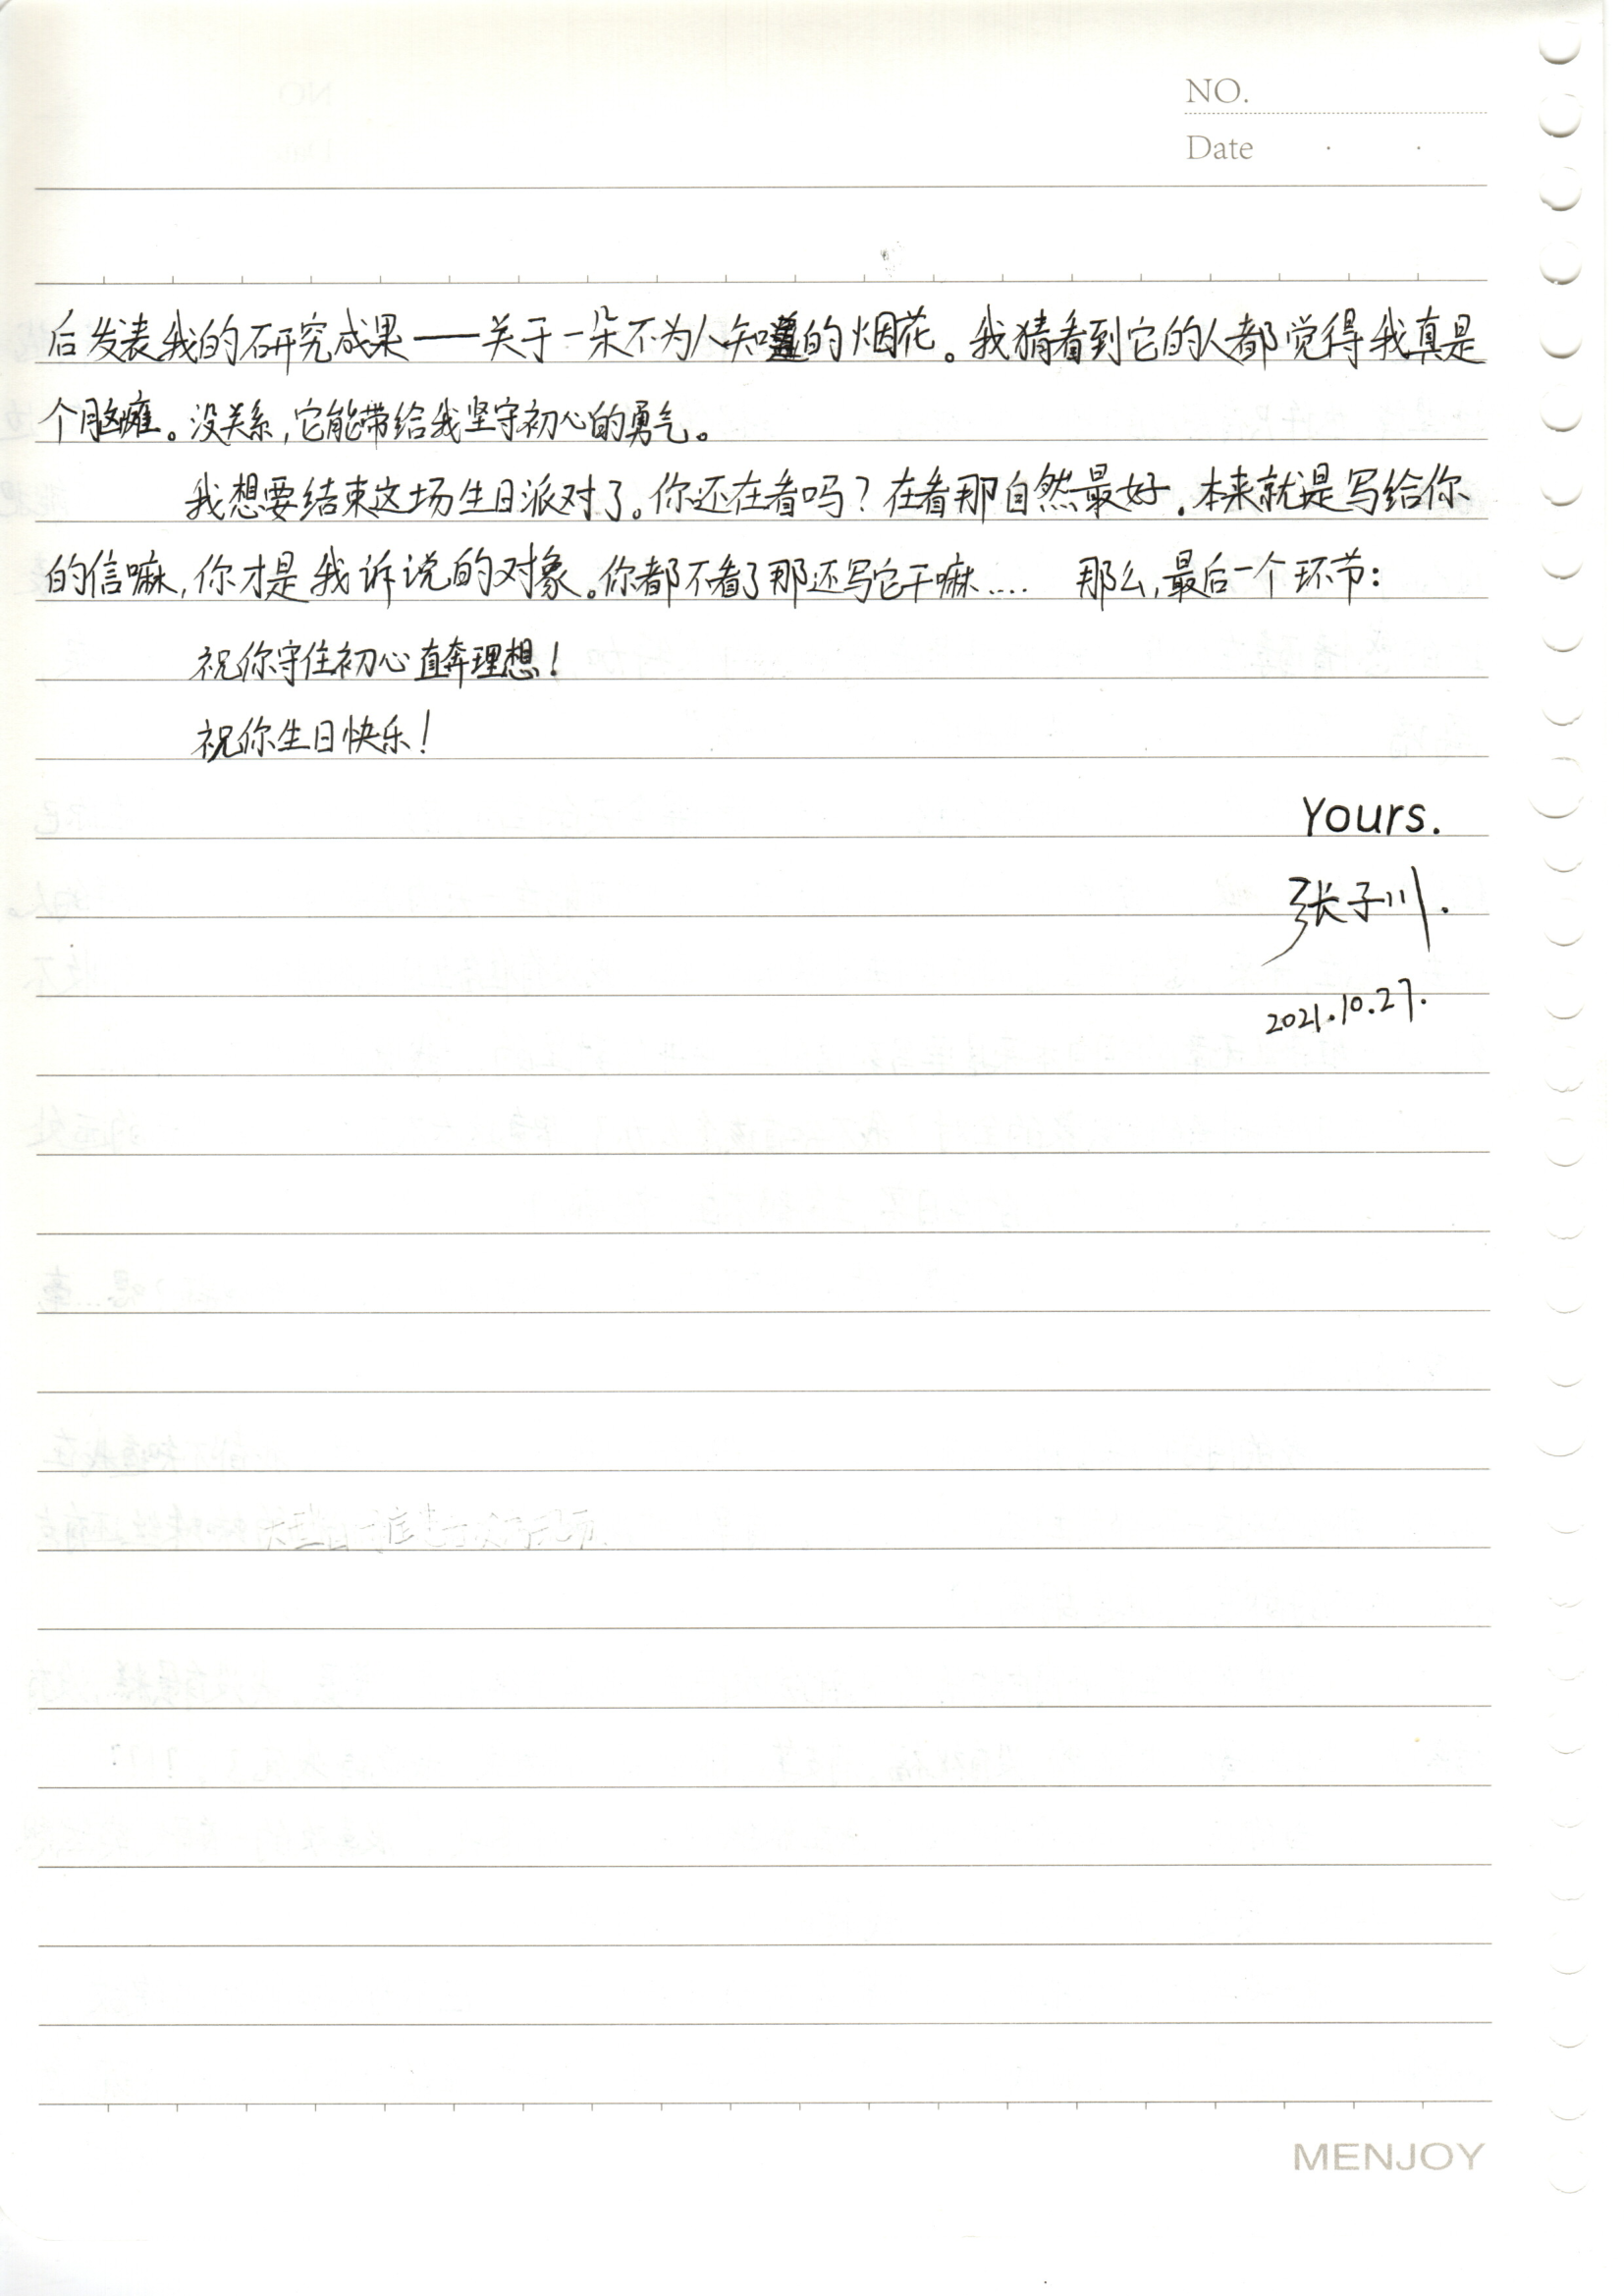 NO.
Date
后发表我的研究成果——关于一朵不为人知的烟花。我猜看到它的人都觉得我真是
个脑瘫。没关系,它能带给我坚守初心的勇气。
我想要结束这场生日派对了。你还在看吗?在看那自然最好.本来就是写给你
的信嘛,你才是我诉说的对象。你都不看了那还写它干嘛.... 那么,最后一个环节:
祝你守住初心直奔理想!
祝你生日快乐!
Yours.
张子川.
2021.10.27.
MENJOY